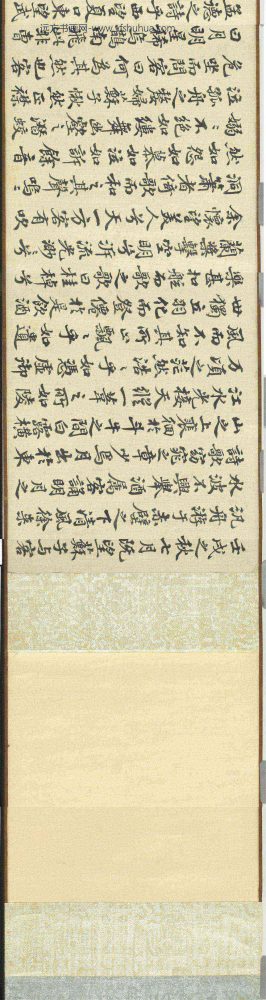 壬戌之秋七月既望蘇子與客
汎舟游于赤壁之下清風徐來
水波不興舉酒屬客誦明月之
詩歌窈窕之章少焉月出於東
山之上裴徊於斗牛之間白露橫
江水光接天縱一葦之所如陵
万頃之茫然浩浩乎如憑虛御
風而不知其所止飄飄乎如遺
世獨立羽化而登僊於是飲酒
樂甚扣舷而歌之歌曰桂棹兮
蘭槳擊空明兮泝流光渺渺兮
余懷望美人兮天一方客有吹
洞簫者倚歌而和之其聲嗚嗚
然如怨如慕如泣如訴餘音
嫋嫋不絕如縷舞幽壑之潛蛟
泣孤舟之嫠婦蘇子愀然正襟
危坐而問客曰何為其然也客
曰月明星稀烏鵲南飛此非曹
孟德之詩乎西望夏口東望武